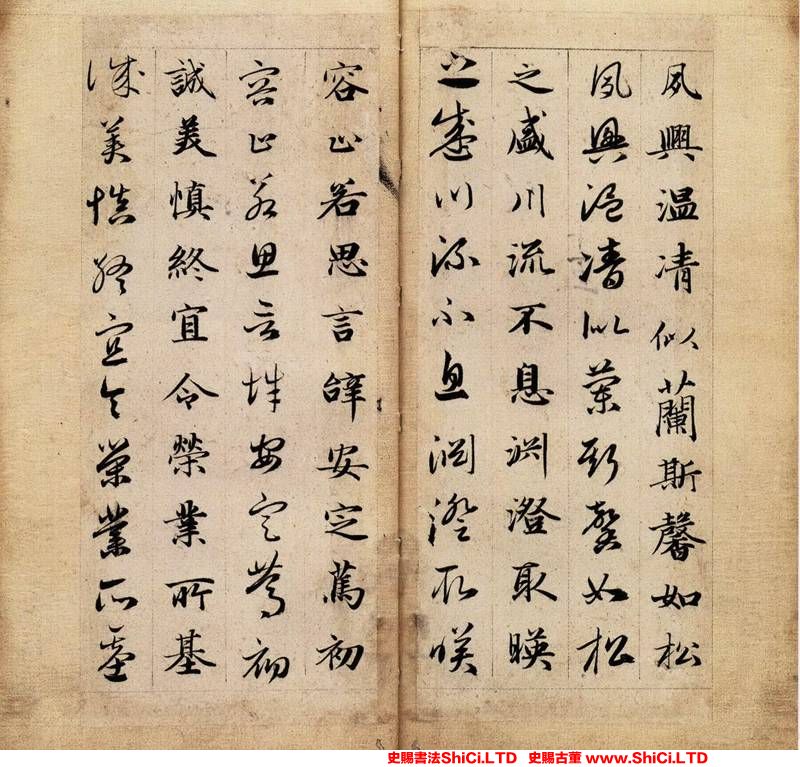 夙興温凊似蘭斯馨如松
夙興温凊似蘭斯馨如松
之盛川流不息渊澄取暎
之盛川流不息渊澄取暎
容止若思言辞安定篤初
容止若思言辞安定篤初
誠美慎終宜令榮業所基
誠美慎終宜令榮業所基
史賜書法ShiCi.LTD 史賜古董 www.ShiCi.LTD